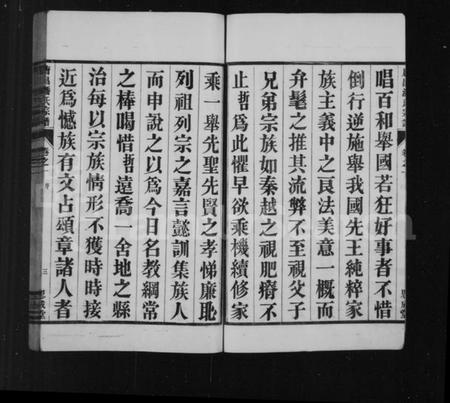 唱百和舉國若狂好事者不惜
倒行逆施舉我國先王純粹家
族主義中之良法美意一槪而
弁髦之推其流弊不至視父子
兄弟宗族如秦越之視肥瘠不
止哲爲此懼早欲乘機續修家
乘一舉先聖先賢之孝悌廉恥
列祖列宗之嘉言懿訓集族人
而申說之以爲今日名教綱常
之棒喝惜哲遠喬一舍地之縣
治每以宗族情形不獲時時接
近爲憾族有文占頌章諸人者
三
思成堂